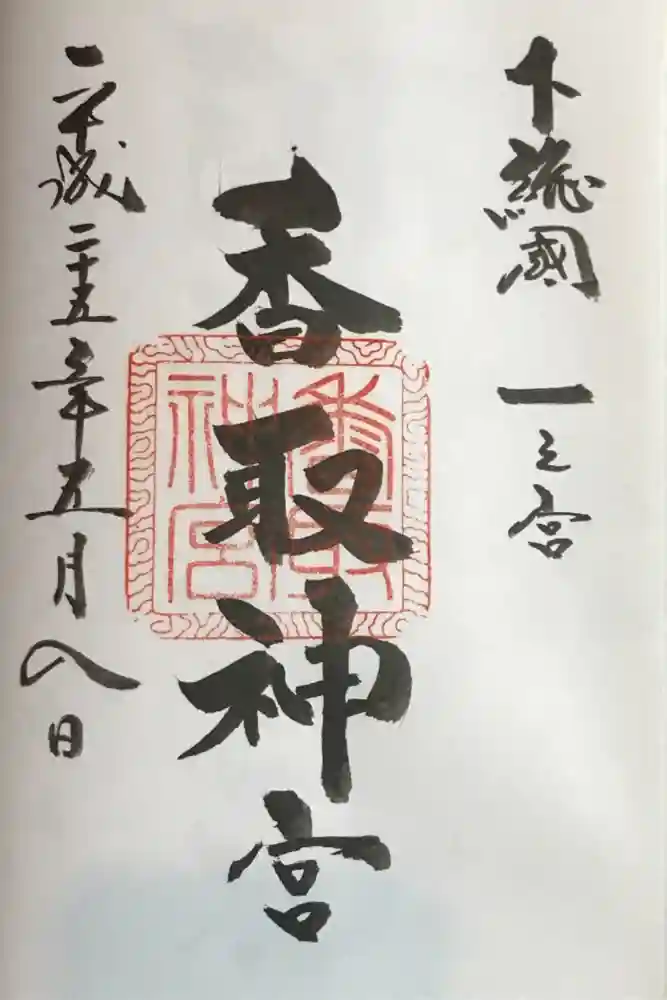 下総國 一之宮
香取神宮
香取神宮
平成二十五年五月八日